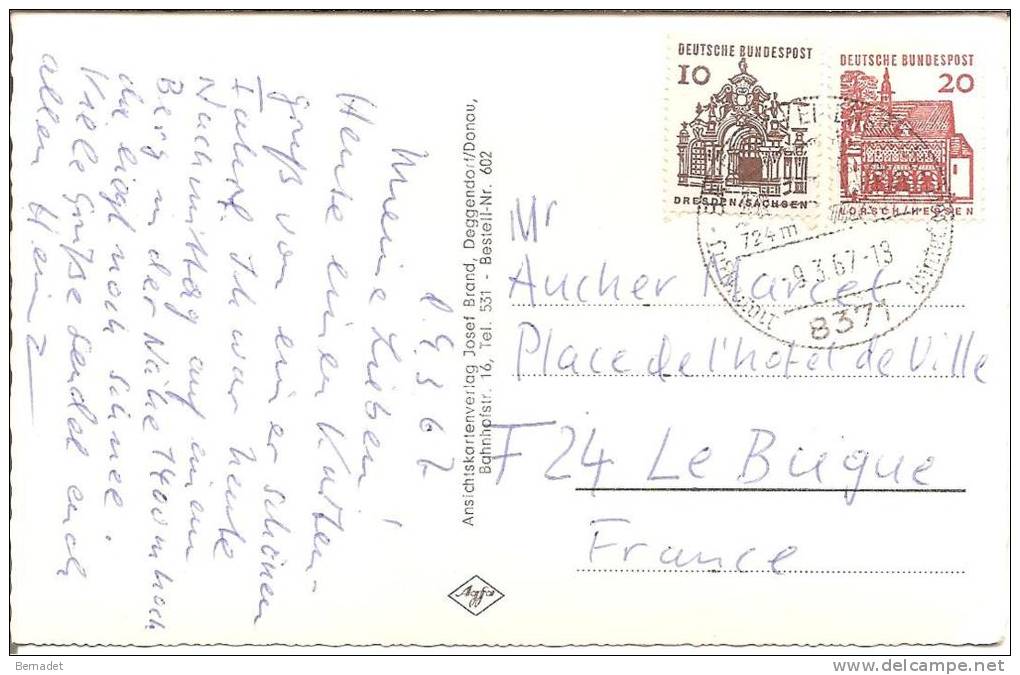 d. 9.3.67
Meine Lieben!
Heute einen Karten-
gruß von einer schönen
Fahrt. Ich war heute
Nachmittag auf einem
Berg in der Nähe 1400 m hoch
da liegt noch Schnee.
Viele Grüße sendet euch
allen Heinz
Ansichtskartenverlag Josef Brand, Deggendorf/Donau,
Bahnhofstr. 16, Tel. 531 - Bestell-Nr. 602
Agfa
DEUTSCHE BUNDESPOST
10
DRESDEN/SACHSEN
DEUTSCHE BUNDESPOST
20
LORSCH/HESSEN
724m
-9.3.67-13
8371
Mr
Aucher Marcel
Place de l'hotel de Ville
F24 Le Bugue
France
Bernadet
www.delcampe.net